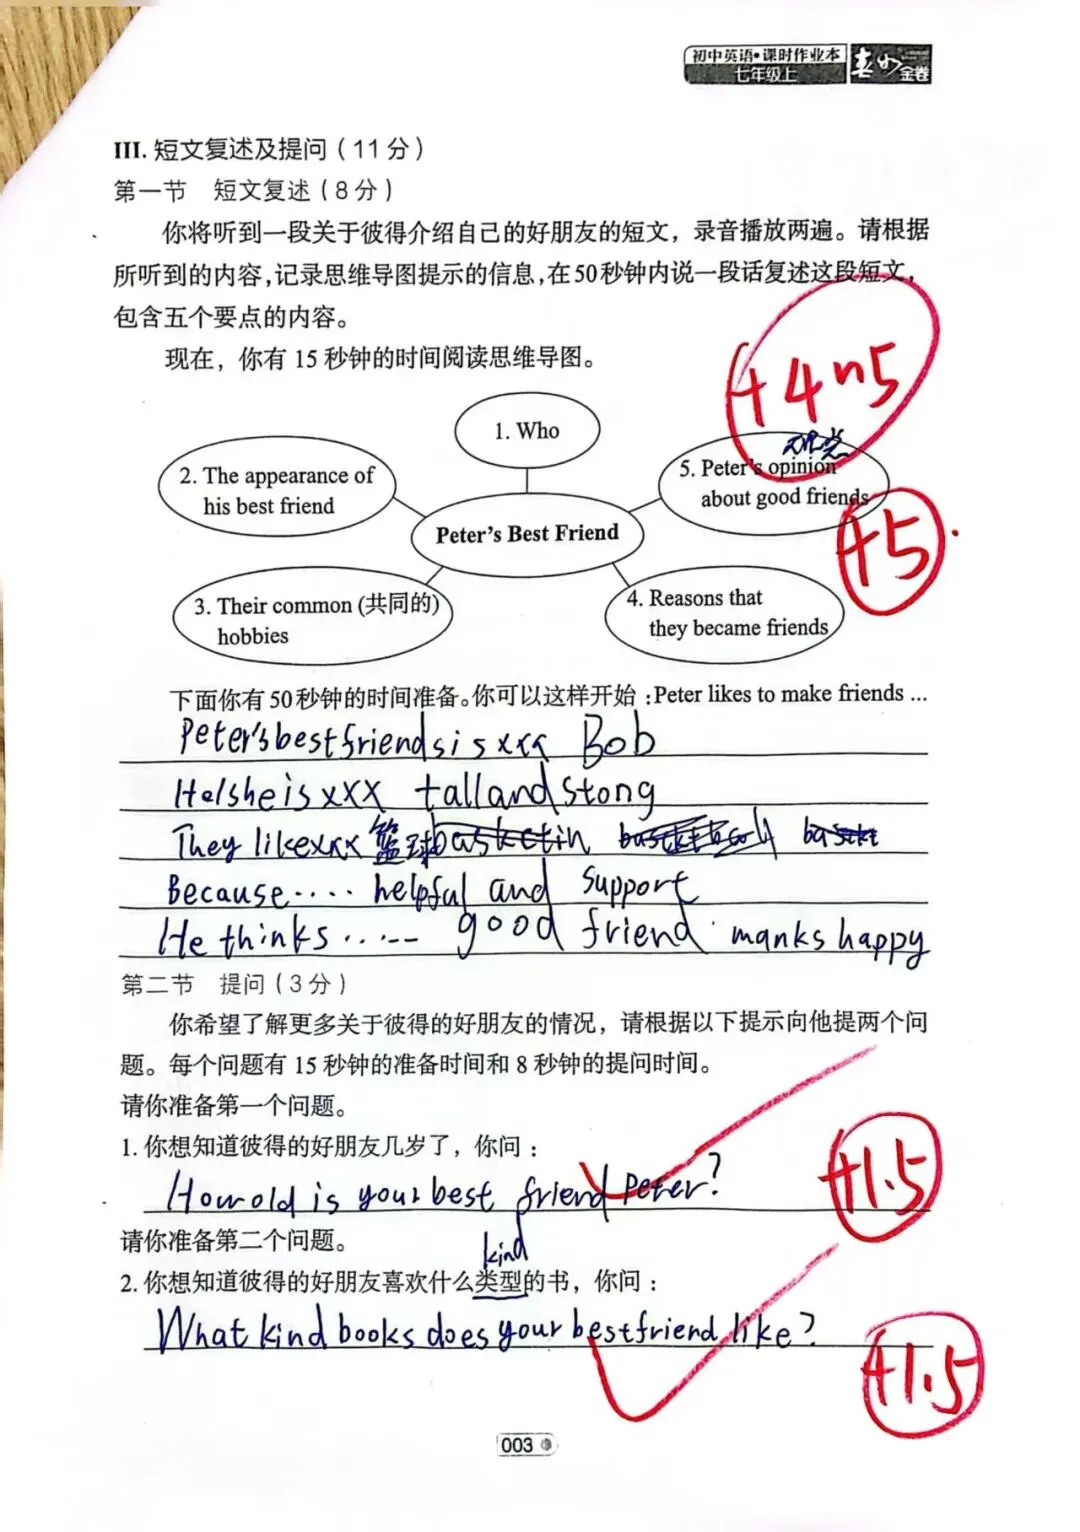 初中英语·课时作业本
七年级上
金卷
III. 短文复述及提问(11分)
第一节 短文复述(8分)
你将听到一段关于彼得介绍自己的好朋友的短文，录音播放两遍。请根据
所听到的内容,记录思维导图提示的信息,在50秒钟内说一段话复述这段短文，
包含五个要点的内容。
现在，你有 15 秒钟的时间阅读思维导图。
1. Who
2. The appearance of
his best friend
5. Peter's opinion
about good friends
Peter's Best Friend
3. Their common (共同的)
hobbies
4. Reasons that
they became friends
+5
下面你有50秒钟的时间准备。你可以这样开始:Peter likes to make friends ...
Peter's best friends is xxx Bob
He/she is xxx tall and stong
They like xxx 篮球
Because.... helpful and support
He thinks ..... good friend manks happy
第二节 提问(3分)
你希望了解更多关于彼得的好朋友的情况，请根据以下提示向他提两个问
题。每个问题有 15 秒钟的准备时间和 8 秒钟的提问时间。
请你准备第一个问题。
1. 你想知道彼得的好朋友几岁了，你问：
How old is your best friend Peter?
+1.5
请你准备第二个问题。
kind
2. 你想知道彼得的好朋友喜欢什么类型的书，你问：
What kind books does your best friend like?
+1.5
003